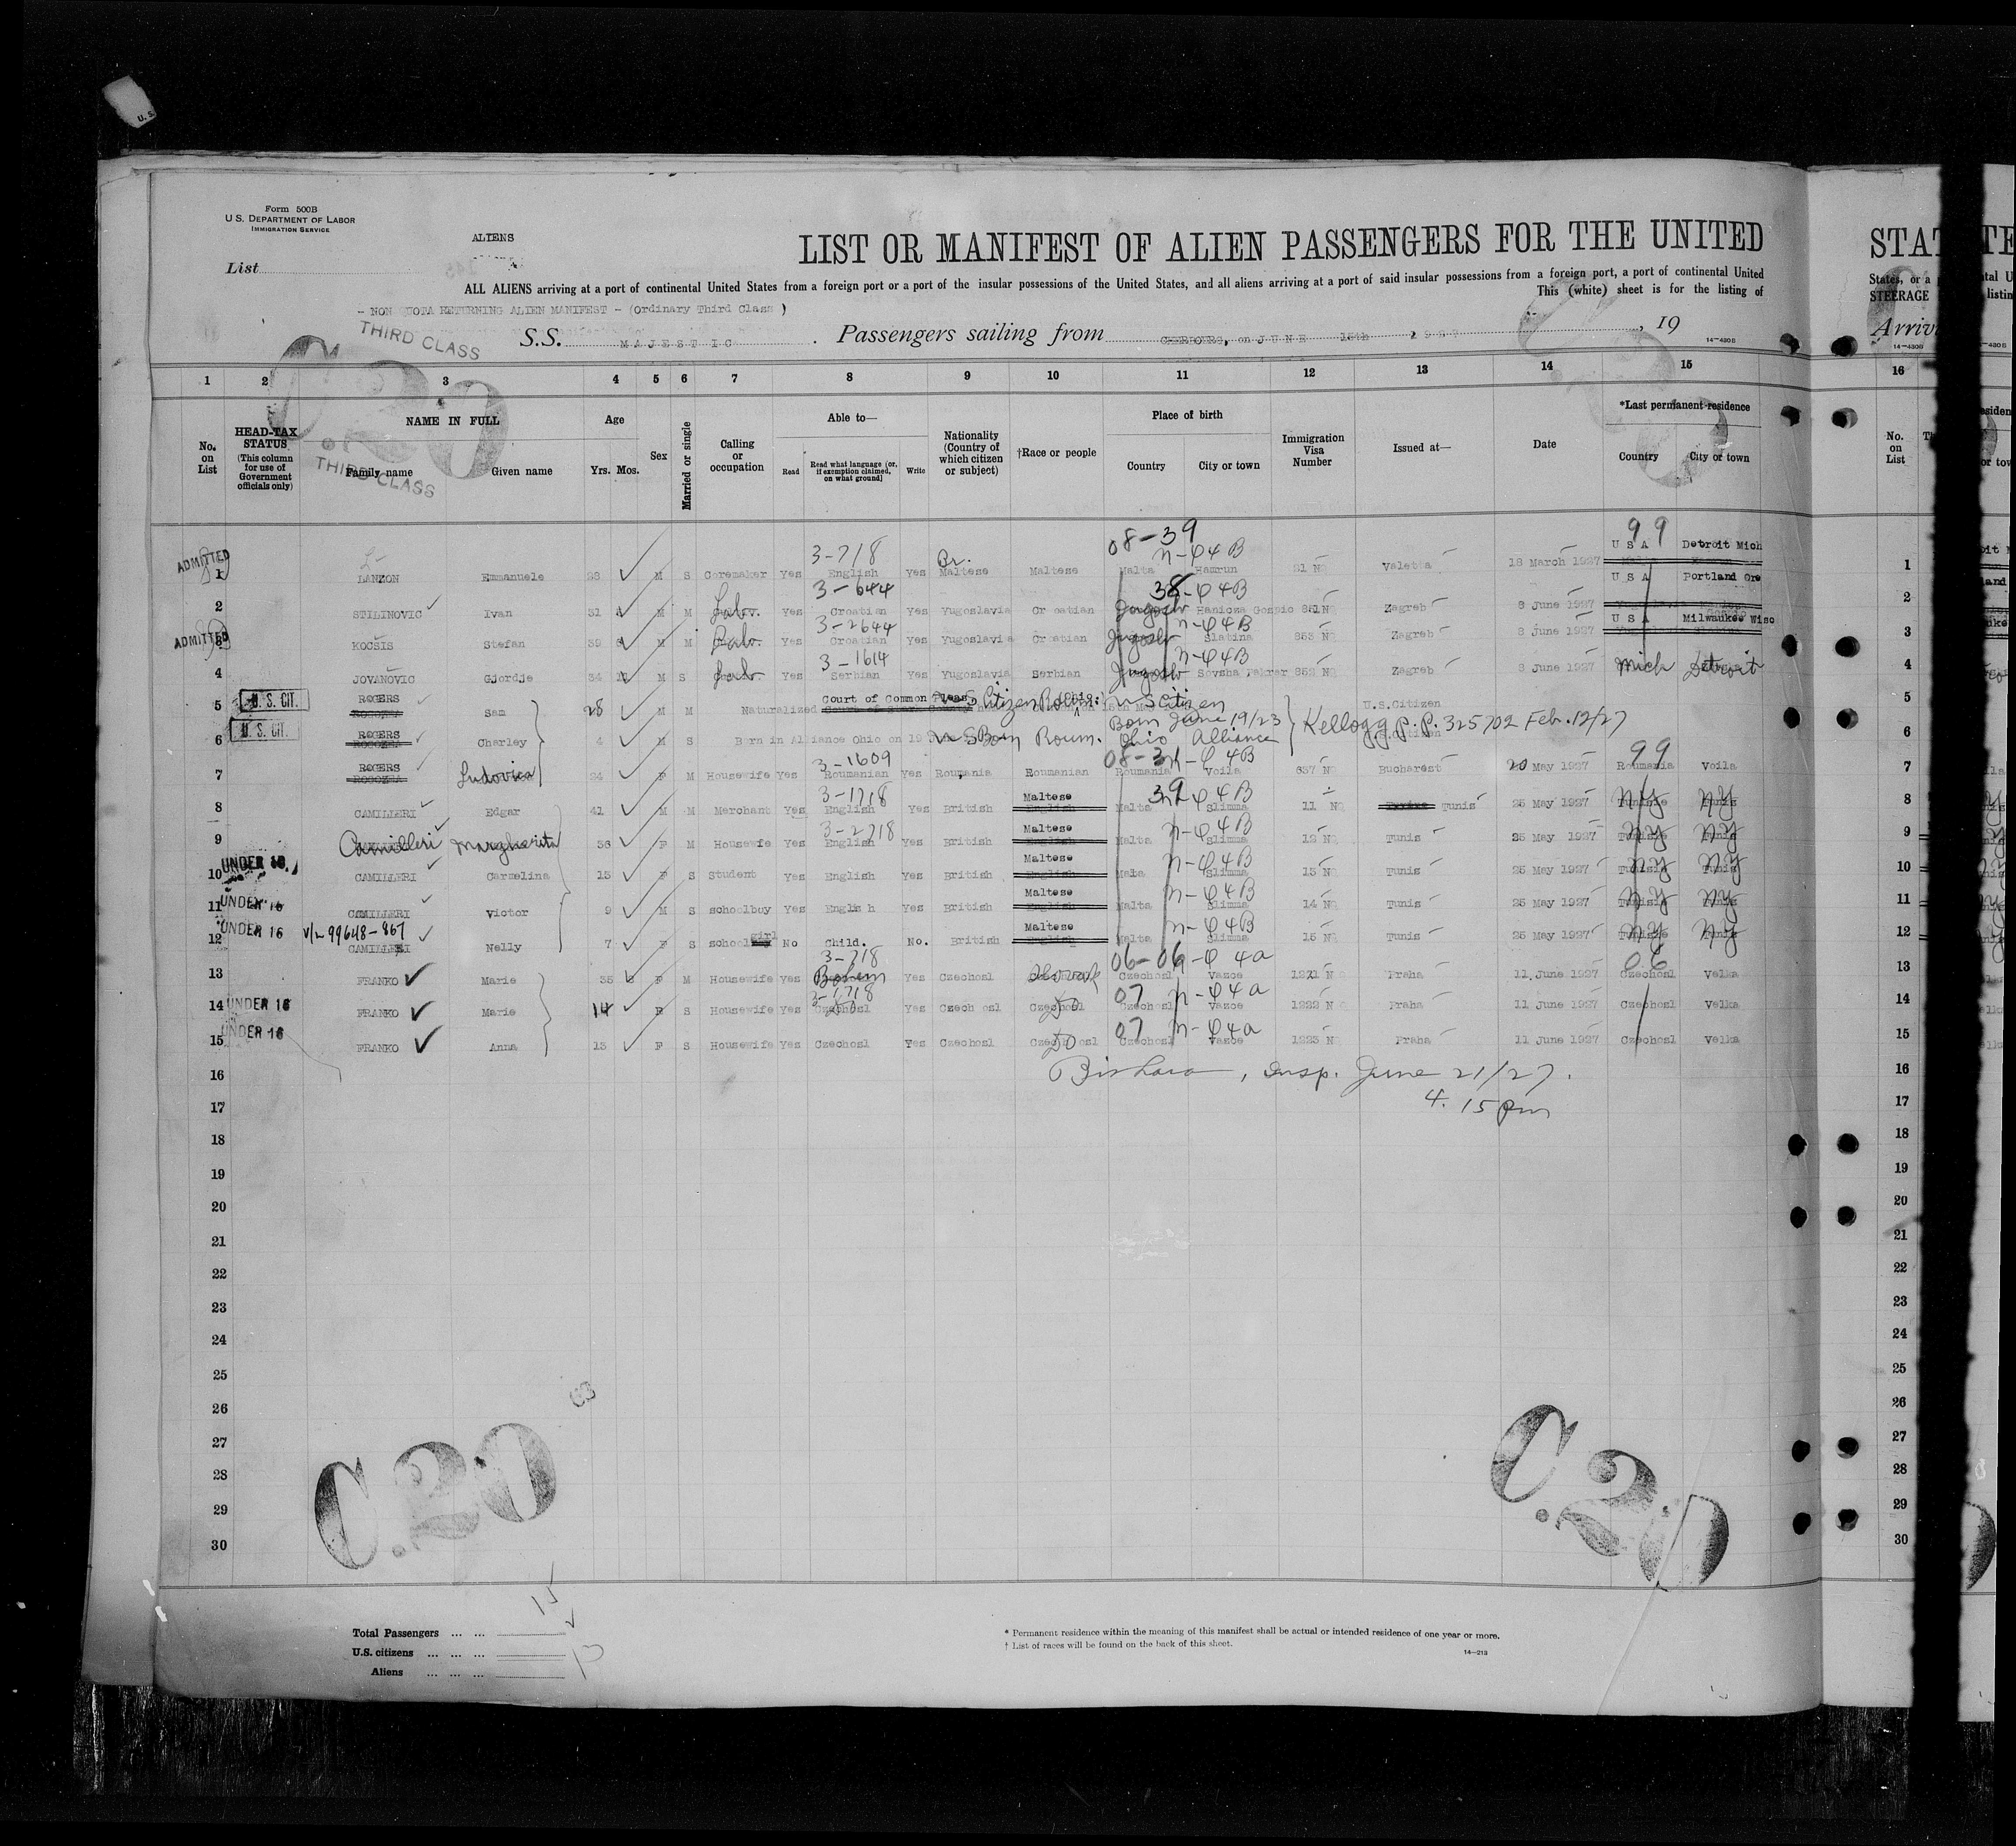 U. S.
Form 500B
U. S. DEPARTMENT OF LABOR
IMMIGRATION SERVICE
ALIENS
List
LIST OR MANIFEST OF ALIEN PASSENGERS FOR THE UNITED
ALL ALIENS arriving at a port of continental United States from a foreign port or a port of the insular possessions of the United States, and all aliens arriving at a port of said insular possessions from a foreign port, a port of continental United
This (white) sheet is for the listing of
- NON QUOTA RETURNING ALIEN MANIFEST - (Ordinary Third Class )
THIRD CLASS
S.S. MAJESTIC . Passengers sailing from CHERBOURG, on JUNE 15th 1927 , 19
14-430B
C.20
THIRD CLASS
1 2 3 4 5 6 7 8 9 10 11 12 13 14 15
No. on List
HEAD-TAX STATUS (This column for use of Government officials only)
NAME IN FULL
Family name Given name
Age
Yrs. Mos.
Sex
Married or single
Calling or occupation
Able to—
Read
Read what language (or, if exemption claimed, on what ground)
Write
Nationality (Country of which citizen or subject)
†Race or people
Place of birth
Country City or town
Immigration Visa Number
Issued at—
Date
*Last permanent residence
Country City or town
3-718 Br. 08-39 n-04B 99 U S A Detroit Mich
ADMITTED 1 LANZON Emmanuele 28 M S Coremaker Yes English Yes Maltese Maltese Malta Hamrun 21 NQ Valetta 18 March 1927
3-644 38-04B U S A Portland Ore
2 STILINOVIC Ivan 31 M M Lab. Yes Croatian Yes Yugoslavia Croatian Jugoslv Hanicza Gospic 851 NQ Zagreb 8 June 1927
3-2644 n-04B U S A Milwaukee Wisc
ADMITTED 3 KOCSIS Stefan 39 M M Lab. Yes Croatian Yes Yugoslavia Croatian Jugoslv Slatina 853 NQ Zagreb 8 June 1927
3-1614 n-04B
4 JOVANOVIC Gjordje 34 M S Lab. Yes Serbian Yes Yugoslavia Serbian Jugoslv 852 NQ Zagreb 8 June 1927 Mich Detroit
U. S. CIT. 5 ROGERS Sam 28 M M Naturalized Court of Common Pleas U.S. Citizen
U. S. CIT. 6 ROGERS Charley 4 M S Born in Alliance Ohio on 19 Born June 19/23 Ohio Alliance Kellogg P.P. 325702 Feb. 12/27
3-1609 08-31 n-04B 99
7 ROGERS Ludovica 24 F M Housewife Yes Roumanian Yes Roumania Roumanian Roumania Voila 637 NQ Bucharest 20 May 1927 Roumania Voila
3-1718 Maltese 39 n-04B
8 CAMILLERI Edgar 41 M M Merchant Yes English Yes British English Malta Slimma 11 NQ Tunis 25 May 1927 NY NY
3-2718 Maltese n-04B
9 Camilleri Margherita 36 F M Housewife Yes English Yes British English Malta Slimma 12 NQ Tunis 25 May 1927 NY NY
UNDER 16 Maltese n-04B
10 CAMILLERI Carmelina 15 F S Student Yes English Yes British English Malta Slimma 13 NQ Tunis 25 May 1927 NY NY
UNDER 16 Maltese n-04B
11 CAMILLERI Victor 9 M S schoolboy Yes English Yes British English Malta Slimma 14 NQ Tunis 25 May 1927 NY NY
UNDER 16 V/L 99648-867 girl Maltese n-04B
12 CAMILLERI Nelly 7 F S school No Child. No. British English Malta Slimma 15 NQ Tunis 25 May 1927 NY NY
3-718 06-06 n-04a 06
13 FRANKO Marie 35 F M Housewife Yes Bohem Yes Czechosl Slovak Czechosl Vazce 1221 NQ Praha 11 June 1927 Czechosl Velka
UNDER 16 3-1718 07 n-04a
14 FRANKO Marie 14 F S Housewife Yes Czechosl Yes Czechosl Do Czechosl Vazce 1222 NQ Praha 11 June 1927 Czechosl Velka
UNDER 16 07 n-04a
15 FRANKO Anna 13 F S Housewife Yes Czechosl Yes Czechosl Do Czechosl Vazce 1223 NQ Praha 11 June 1927 Czechosl Velka
16 Insp. June 21/27.
17 4.15 pm
18
19
20
21
22
23
24
25
26
27
28
29
30
C.20
C.20
15
Total Passengers ... ...
U.S. citizens ... ... ...
Aliens ... ... ...
* Permanent residence within the meaning of this manifest shall be actual or intended residence of one year or more.
† List of races will be found on the back of this sheet.
14-213
STAT
States, or a
STEERAGE
Arriv
14-430B
16
No. on List
1
2
3
4
5
6
7
8
9
10
11
12
13
14
15
16
17
18
19
20
21
22
23
24
25
26
27
28
29
30